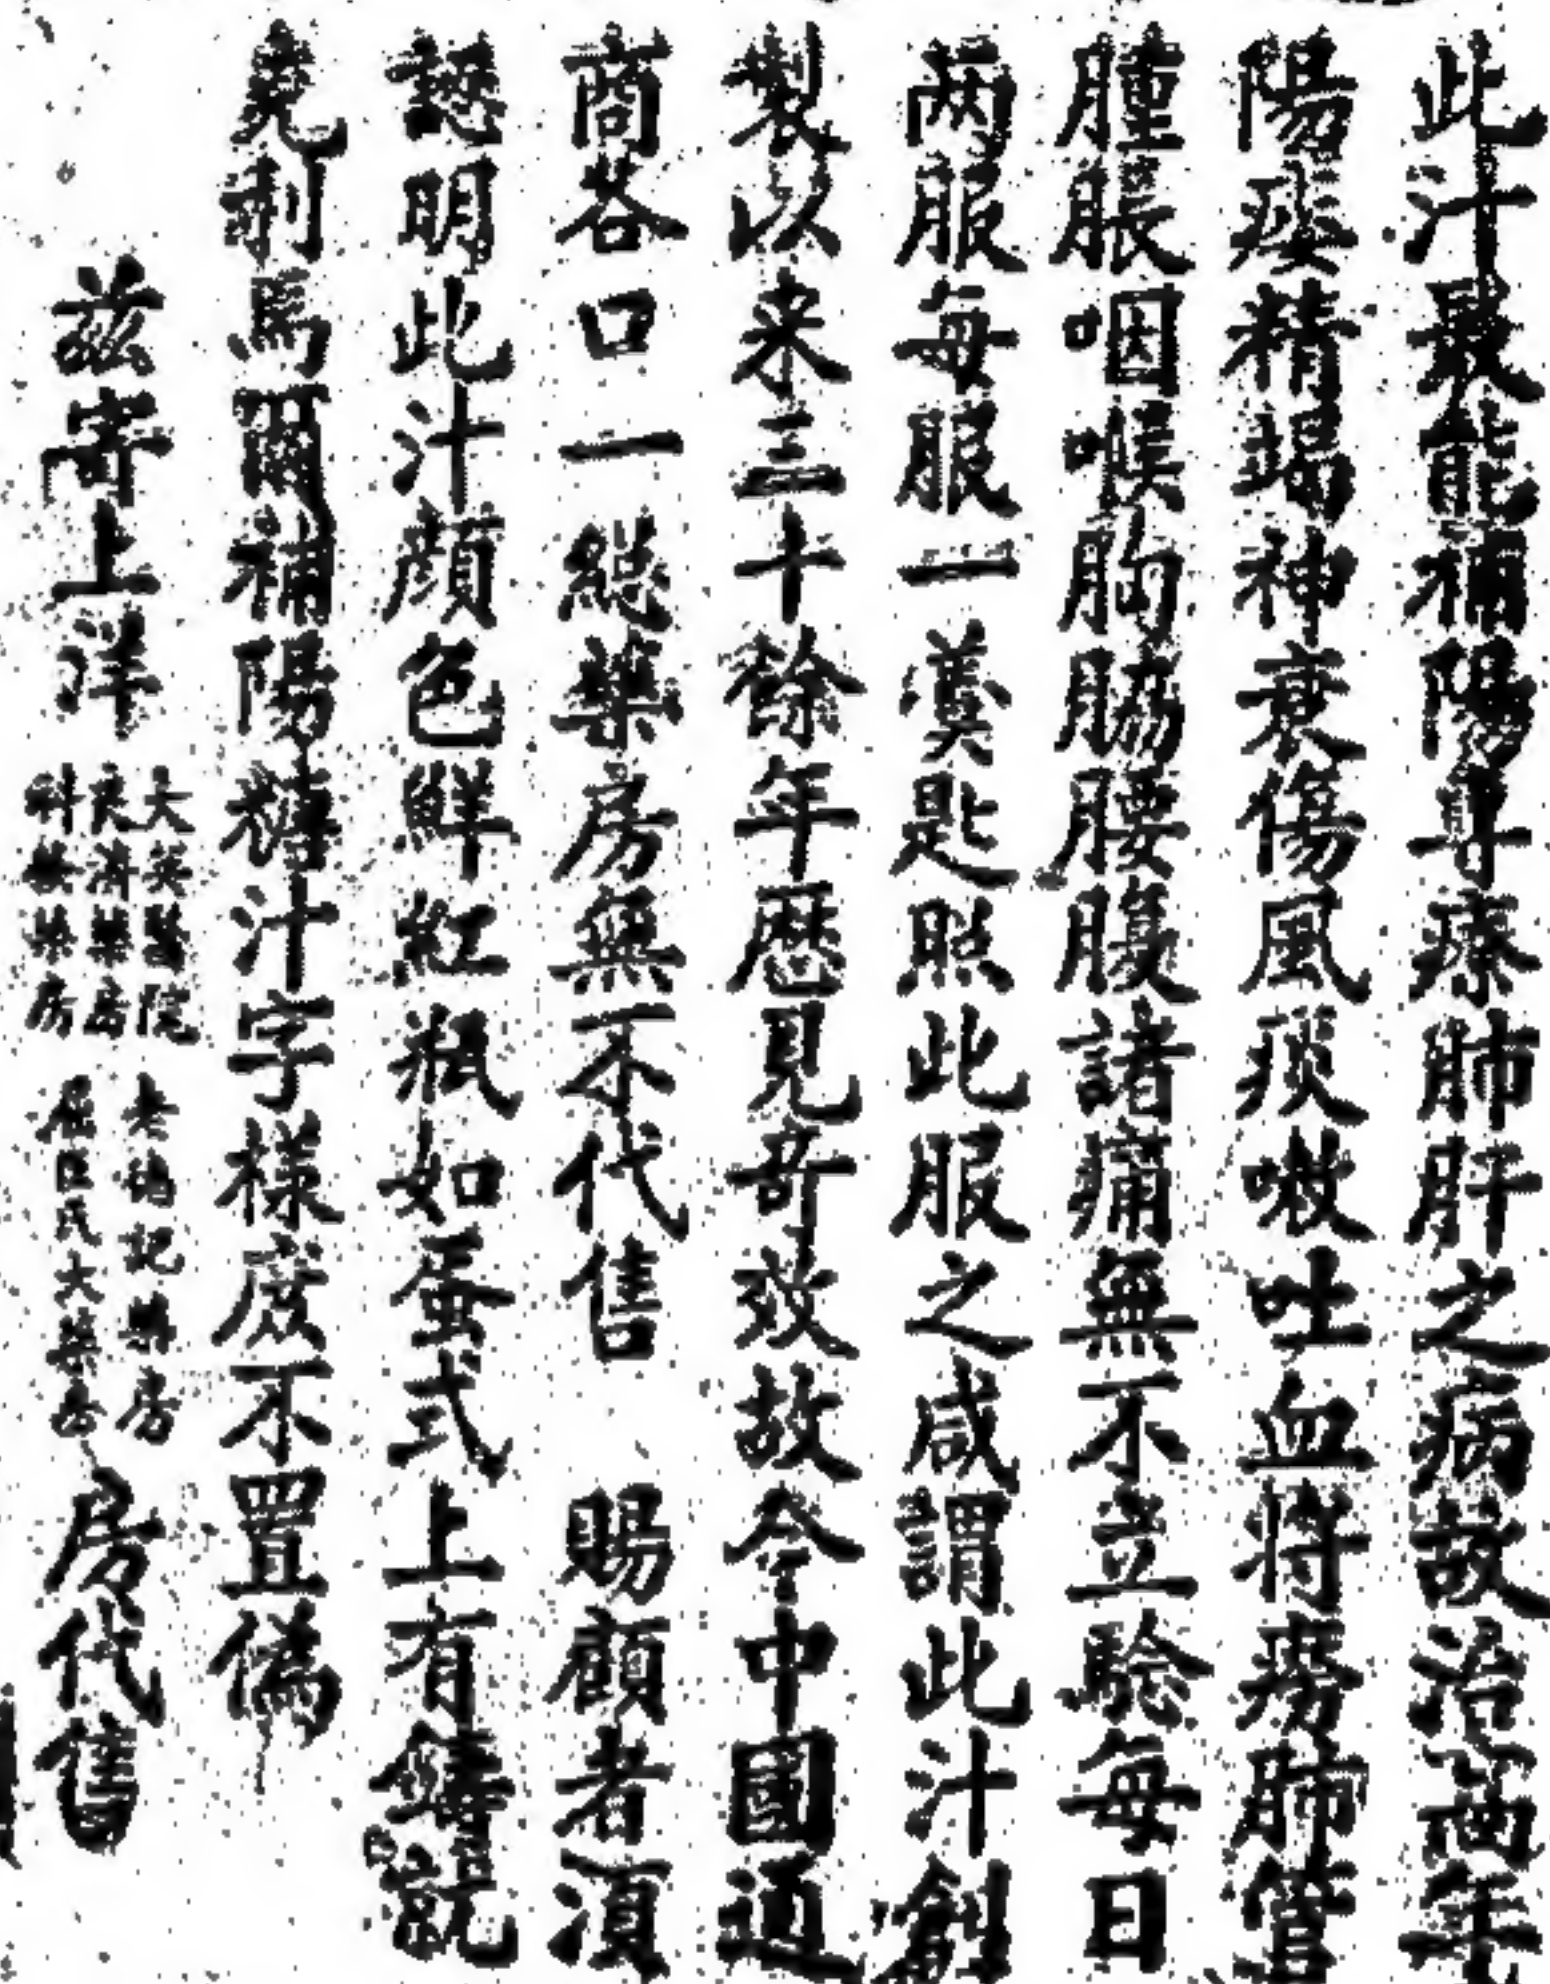 此汁最能補陽專療肺肝之病故治兩年
陽痿精竭神衰傷風痰嗽吐血將癆肺管
腫脹咽喉胸脇腰腹諸痛無不立騐每日
两服每服一羹匙照此服之咸謂此汁創
製以来三十餘年歷見奇效故今中國通
商各口一總藥房無不代售 賜顧者須
認明此汁顔色鮮紅瓶如蛋式上有鑄就
堯利馬爾補陽糖汁字樣庶不置偽
茲寄上洋
大英醫院
良濟藥房
科發藥房
老德記藥房
屈臣氏大藥房
房代售